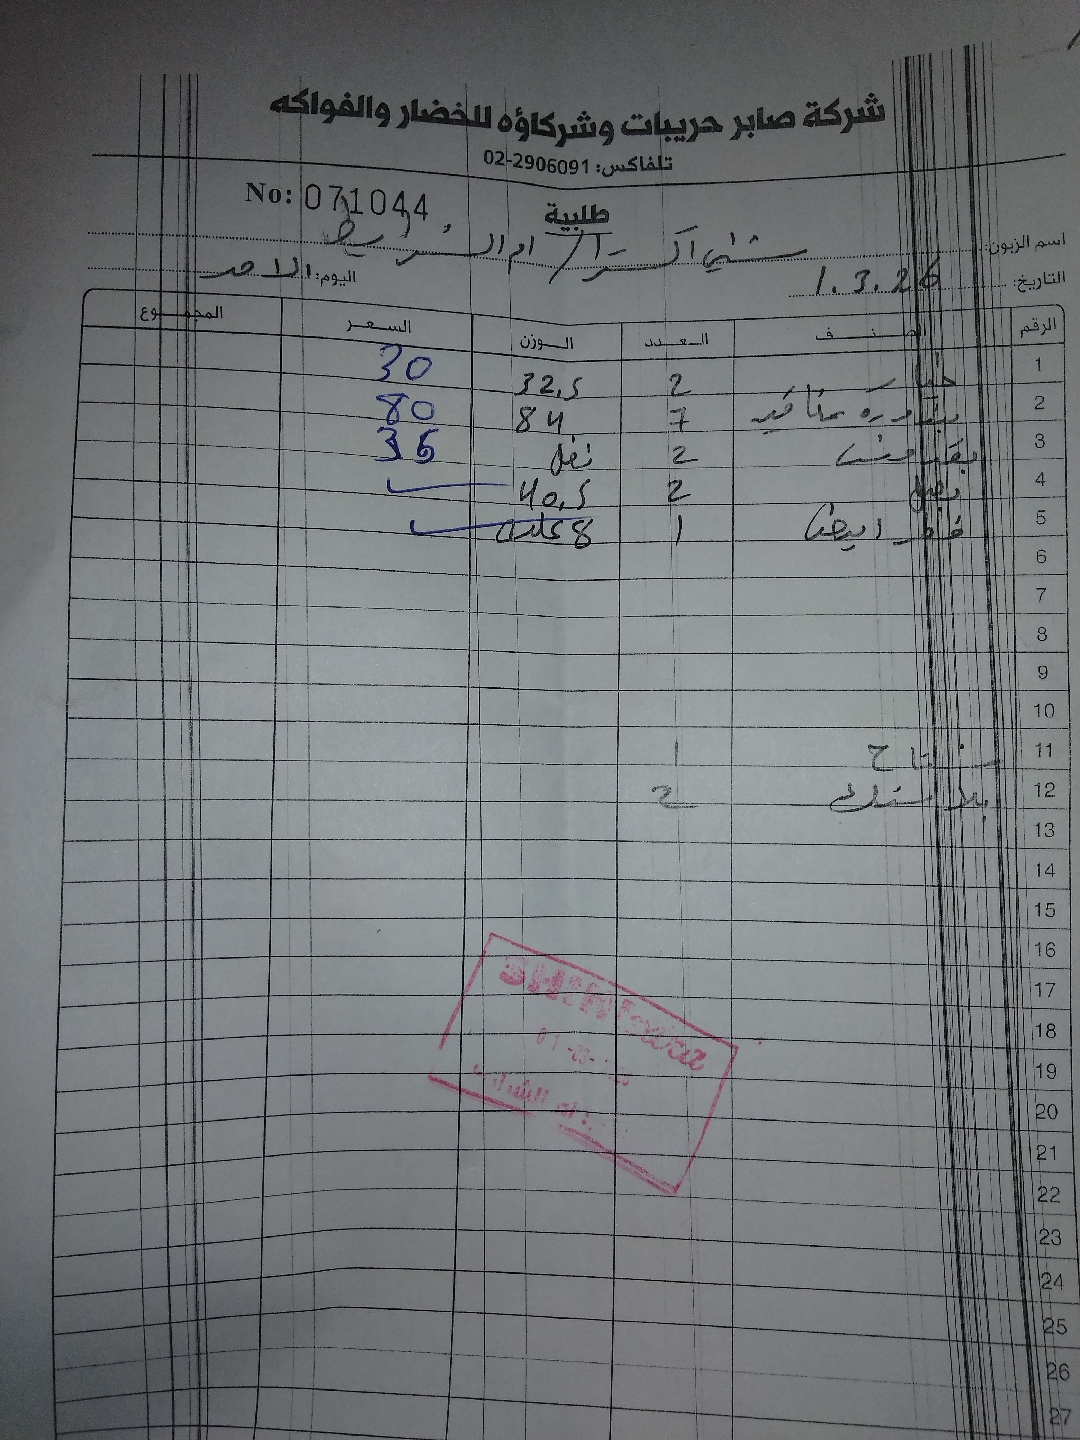 شركة صابر حريبات وشركاؤه للخضار والفواكه
تلفاكس: 02-2906091
No: 071044
طلبية
اسم الزبون: شني اكسترا / ام الشرايط
التاريخ: 1.3.26 اليوم: الاحد
الرقم الصنف العدد الوزن السعر المجموع
1 خيار 2 32,5 30
2 بندورة عناقيد 7 84 80
3 2 نفل 36
4 بصل 2 40,5
5 فطر ابيض 1 8 علب
6
7
8
9
10
11 1
12 بلاستيك 2
13
14
15
16
17
18
19
20
21
22
23
24
25
26
27
ام الشرايط